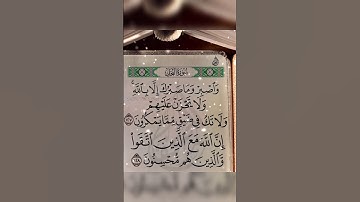 سُورَةُ النَّحْلِ
وَٱصْبِرْ وَمَا صَبْرُكَ إِلَّا بِٱللَّهِ ۚ
وَلَا تَحْزَنْ عَلَيْهِمْ
وَلَا تَكُ فِى ضَيْقٍ مِّمَّا يَمْكُرُونَ ١٢٧
إِنَّ ٱللَّهَ مَعَ ٱلَّذِينَ ٱتَّقَوا۟
وَّٱلَّذِينَ هُم مُّحْسِنُونَ ١٢٨